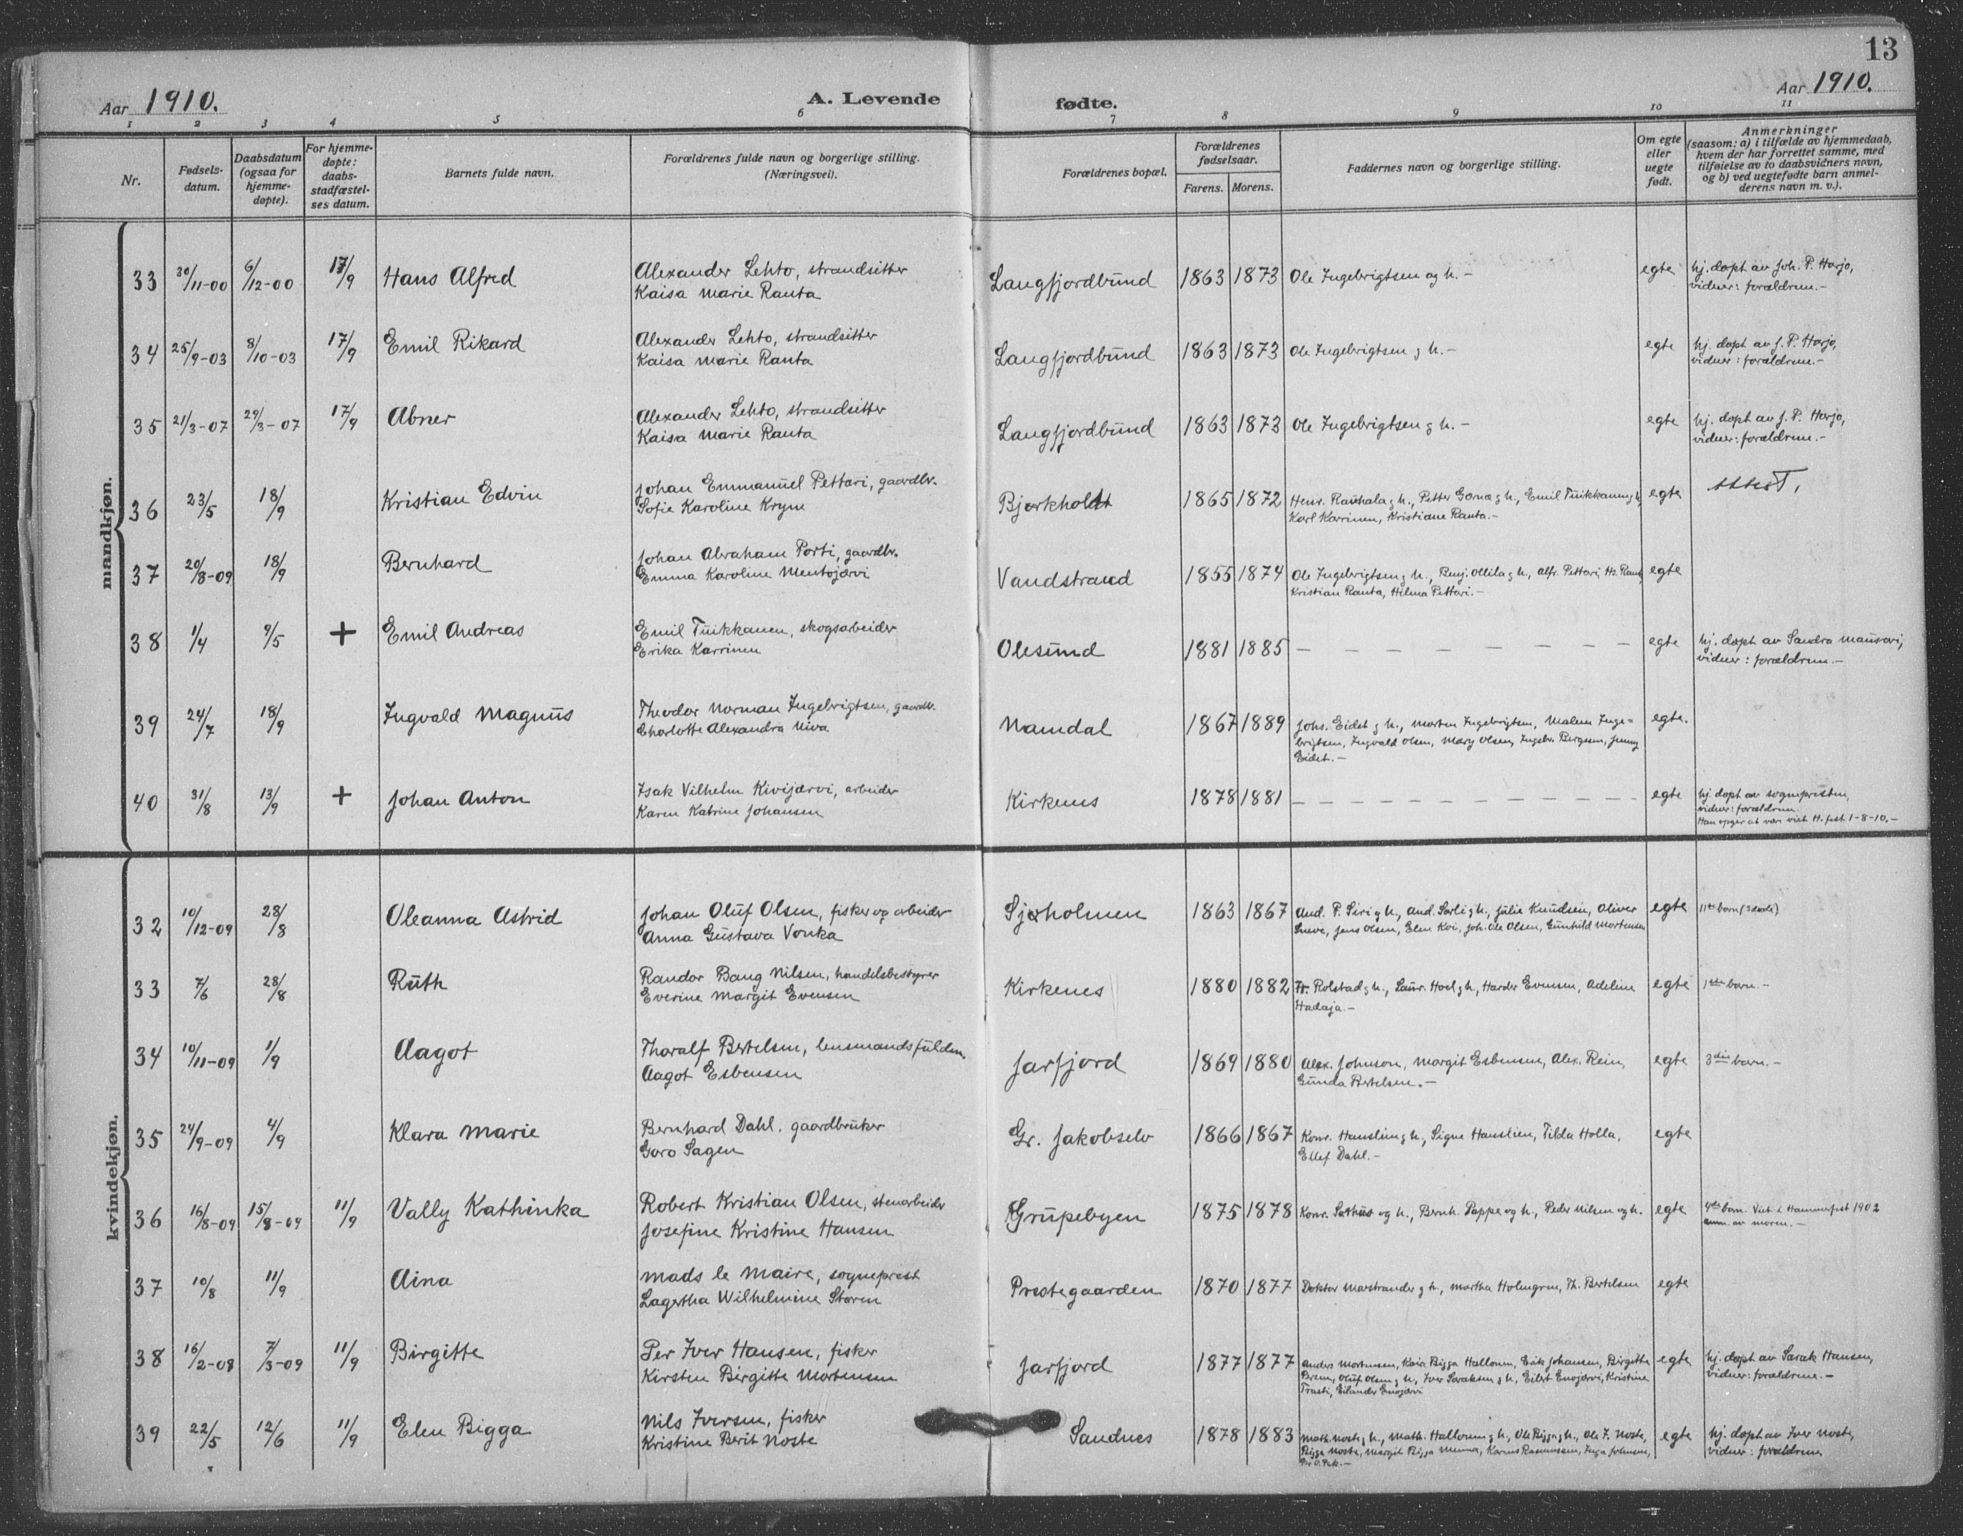 13
Aar 1910. A. Levende fødte. Aar 1910.
1 2 3 4 5 6 7 8 9 10 11
Nr.
Fødsels-
datum.
Daabsdatum
(ogsaa for
hjemme-
døpte).
For hjemme-
døpte:
daabs-
stadfæstel-
ses datum.
Barnets fulde navn.
Forældrenes fulde navn og borgerlige stilling.
(Næringsvei).
Forældrenes bopæl.
Forældrenes
fødselsaar.
Farens. Morens.
Faddernes navn og borgerlige stilling.
Om egte
eller
uegte
født.
Anmerkninger
(saasom: a) i tilfælde av hjemmedaab,
hvem der har forrettet samme, med
tilføielse av to daabsvidners navn,
og b) ved uegtefødte barn anmel-
derens navn m. v.).
mandkjøn.
33 30/11-00 6/12-00 17/9 Hans Alfred Alexander Lehto, strandsitter Langfjordbund 1863 1873 Ole Ingebrigtsen og h. - egte hj. døpt av Joh. P. Harjo,
Kaisa Marie Ranta vidner: forældrene.-
34 25/9-03 8/10-03 17/9 Emil Rikard Alexander Lehto, strandsitter Langfjordbund 1863 1873 Ole Ingebrigtsen g h. - egte hj. døpt av J. P. Harjo,
Kaisa Marie Ranta vidner: forældrene.-
35 21/3-07 29/3-07 17/9 Abner Alexander Lehto, strandsitter Langfjordbund 1863 1873 Ole Ingebrigtsen g h. - egte hj. døpt av J. P. Harjo,
Kaisa Marie Ranta vidner: forældrene.-
36 23/5 18/9 Kristian Edvin Johan Emmanuel Pettari, gaardbr. Bjørkholt 1865 1872 Henr. Rauhala g h., Petter Gorna g h., Emil Tuikkanen g h egte Attest,
Sofie Karoline Krym Karl Karrinen, Kristiane Ranta.-
37 20/8-09 18/9 Bernhard Johan Abraham Porti, gaardbr. Vandstrand 1855 1874 Ole Ingebrigtsen g h., Benj. Ollila g h., Alfr. Pettari, egte
Emma Karoline Mentojærvi Kristian Ranta, Hilma Pettari.-
38 1/4 9/5 + Emil Andreas Emil Tuikkanen, skogsarbeider Olesund 1881 1885 - - - - egte hj. døpt av Sandra
Erika Karrinen vidner: forældrene.-
39 24/7 18/9 Ingvald Magnus Theodor Norman Ingebrigtsen, gaardbr. Namdal 1867 1889 Johs. Eidet g h., Morten Ingebrigtsen, Malene Inge- egte.
Charlotte Alexandra Niva brigtsen, Ingvald Olsen, Mary Olsen, Ingebr. Bergesen, Jenny
Eidet.-
40 31/8 13/9 + Johan Anton Isak Vilhelm Kivijærvi, arbeider Kirkenes 1878 1881 - - - - egte hj. døpt av sognepresten,
Karen Katrine Johansen vidner: forældrene.
Han opger at være viet H.fest 1-8-10.-
kvindekjøn.
32 10/12-09 28/8 Oleanna Astrid Johan Oluf Olsen, fisker og arbeider Sjøholmen 1863 1867 And. P. Siri g h., And. Sarli g h., Julie Knudsen, Oliver egte 11te barn (3 døde)
Anna Gustava Vonka Sneve, Jens Olsen, Elen Koi, Joh. Ole Olsen, Gunhild Mortensen
33 7/6 28/8 Ruth Randor Bang Nilsen, handelsbestyrer Kirkenes 1880 1882 Fr. Rolstad g h., Laur. Hoel g h., Harder Evensen, Adeline egte 1ste barn.-
Everine Margit Evensen Hadaja.-
34 10/11-09 1/9 Aagot Tharalf Bertelsen, lensmandsfuldm. Jarfjord 1869 1880 Alex. Johnson, Margit Esbensen, Alex. Rein, egte 3die barn.-
Aagot Esbensen Gunda Bertelsen.-
35 24/9-09 4/9 Klara Marie Bernhard Dahl, gaardbruker Gr. Jakobselv 1866 1867 Konr. Hanslien g h., Signe Hanslien, Tilda Holla, egte
Goro Sagen Ellef Dahl.-
36 16/8-09 15/8-09 11/9 Vally Kathinka Robert Kristian Olsen, stenarbeider Grubebyen 1875 1878 Konr. Sathus og h., Bernh. Pappe og h., Peder Nilsen og h. egte 4de barn. Viet i Hammerfest 1902
Josefine Kristine Hansen anm. av moren.-
37 10/8 11/9 Aina Mads le Maire, sogneprest Prestegaarden 1870 1877 Doktor Marstrander g h., Martha Holmgren, Th. Bertelsen egte
Lagertha Wilhelmine Støren
38 16/2-08 7/3-09 11/9 Birgitte Per Iver Hansen, fisker Jarfjord 1877 1877 Anders Mortensen, Kaia Bigga Halloven, Erik Johansen, Birgitte egte hj. døpt av Sarak Hansen,
Kirsten Birgitte Mortensen Persen, Oluf Olsen g h., Iver Saraksen g h., Eilert Enojærvi, Kristine vidner: forældrene.-
Trasti, Erlander Enojærvi
39 22/5 12/6 11/9 Elen Bigga Nils Iversen, fisker Sandnes 1878 1883 Math. Noste g h., Math. Halloven g h., Ole Bigga g h., Ole J. Noste, egte hj. døpt av Iver Noste,
Kristine Berit Noste Bigga Noste, Margit Bigga, Karius Rasmussen, Inga Johnsen, vidner: forældrene